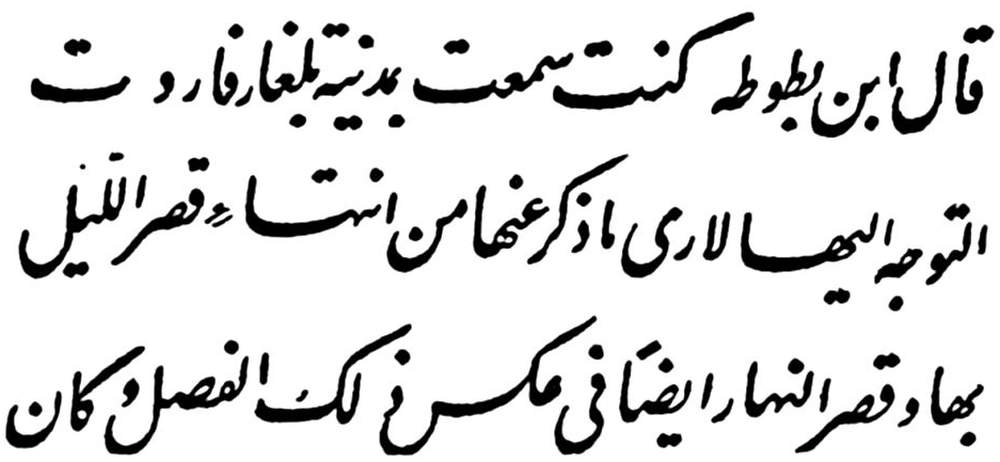 قال ابن بطوطه كنت سمعت بمدينة بلغار فاردت
التوجه اليها لارى ما ذكر عنها من انتهاء قصر الليل
بها وقصر النهار ايضاً فى عكس ذلك الفصل وكان